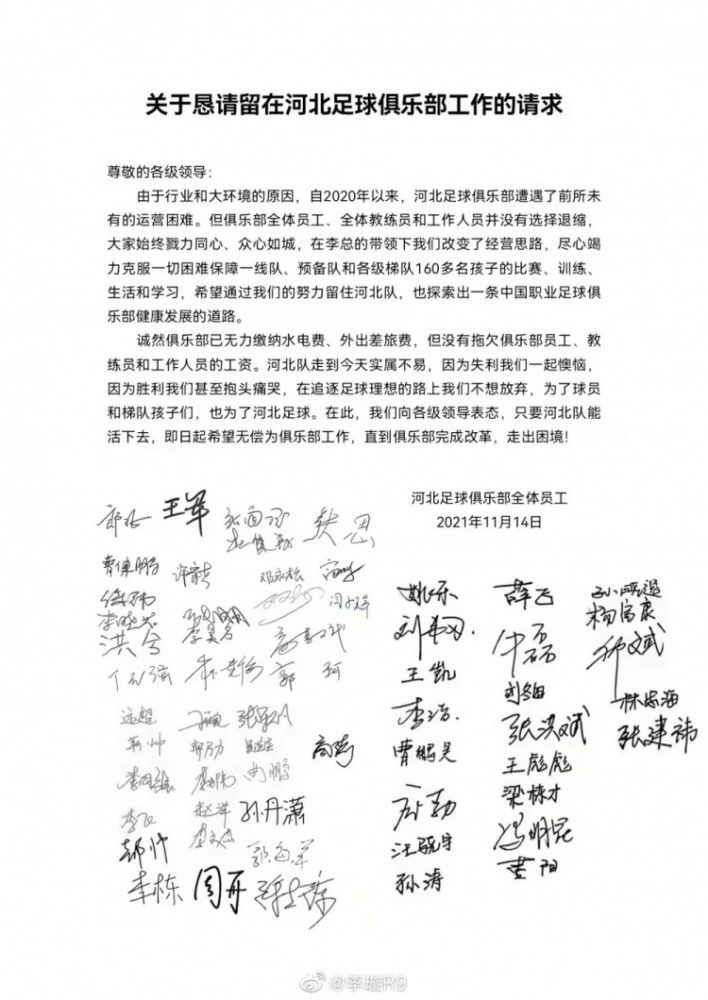 关于恳请留在河北足球俱乐部工作的请求
尊敬的各级领导：
由于行业和大环境的原因，自2020年以来，河北足球俱乐部遭遇了前所未
有的运营困难。但俱乐部全体员工、全体教练员和工作人员并没有选择退缩，
大家始终戮力同心、众心如城，在李总的带领下我们改变了经营思路，尽心竭
力克服一切困难保障一线队、预备队和各级梯队160多名孩子的比赛、训练、
生活和学习，希望通过我们的努力留住河北队，也探索出一条中国职业足球俱
乐部健康发展的道路。
诚然俱乐部已无力缴纳水电费、外出差旅费，但没有拖欠俱乐部员工、教
练员和工作人员的工资。河北队走到今天实属不易，因为失利我们一起懊恼，
因为胜利我们甚至抱头痛哭，在追逐足球理想的路上我们不想放弃，为了球员
和梯队孩子们，也为了河北足球。在此，我们向各级领导表态，只要河北队能
活下去，即日起希望无偿为俱乐部工作，直到俱乐部完成改革，走出困境！
河北足球俱乐部全体员工
2021年11月14日
王军
姚乐
薛飞
杨富康
洪兮
王凯
牛磊
郭珂
李浩
林忠海
远超
张洪斌
张建祎
曹鹏昊
王彪彪
梁栋才
孙丹潇
汪骁宇
冯明昆
郝帅
孙涛
黄阳
李栋
周丹
@李璇R9